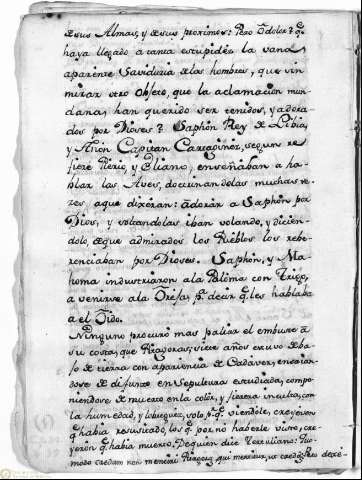 de sus Almas, y de sus proximos: Pero ò dolor? q.e
haya llegado a tanta estupides la vana
aparente Saviduria de los hombres, que sin
mirar otro objeto, que la aclamacion mun
dana, han querido ser tenidos, y adora
dos por Dioses? Saphon Rey de Libia,
y Anon Capitan Cartagines, segun re
fiere Pierio, y Eliano, enseñaban a ha
blar las Aves, doctrinandolas muchas ve
zes, a que dixeran: adorar a Saphon por
Dios, y soltandolas iban volando, y dicien
dolo, de que admirados los Pueblos los rebe
renciaban por Dioses. Saphon, y Ma
homa industriaron a la Paloma con Trigo,
a venirse a la Oreja, p.a decir q.e les hablaba
a el Oido.
Ninguno procurò mas paliar el embuste a
su costa, que Pitagoras; siete años estuvo deba
jo de tierra con apariencia de Cadaver, ensaian
dose de difunto en Sepultura estudiada, compo
niendose de muerto en la color, y fiereza inculta, con
la humedad, y lobreguez, solo p.r q.e viendole, creyesen
q.e habia resusitado, los q.e por no haverle visto, cre
yeron q.e habia muerto. De quien dice Tertuliano: Quo
modo credam non mentiri Pitagoras, qui mentitur, ut credam